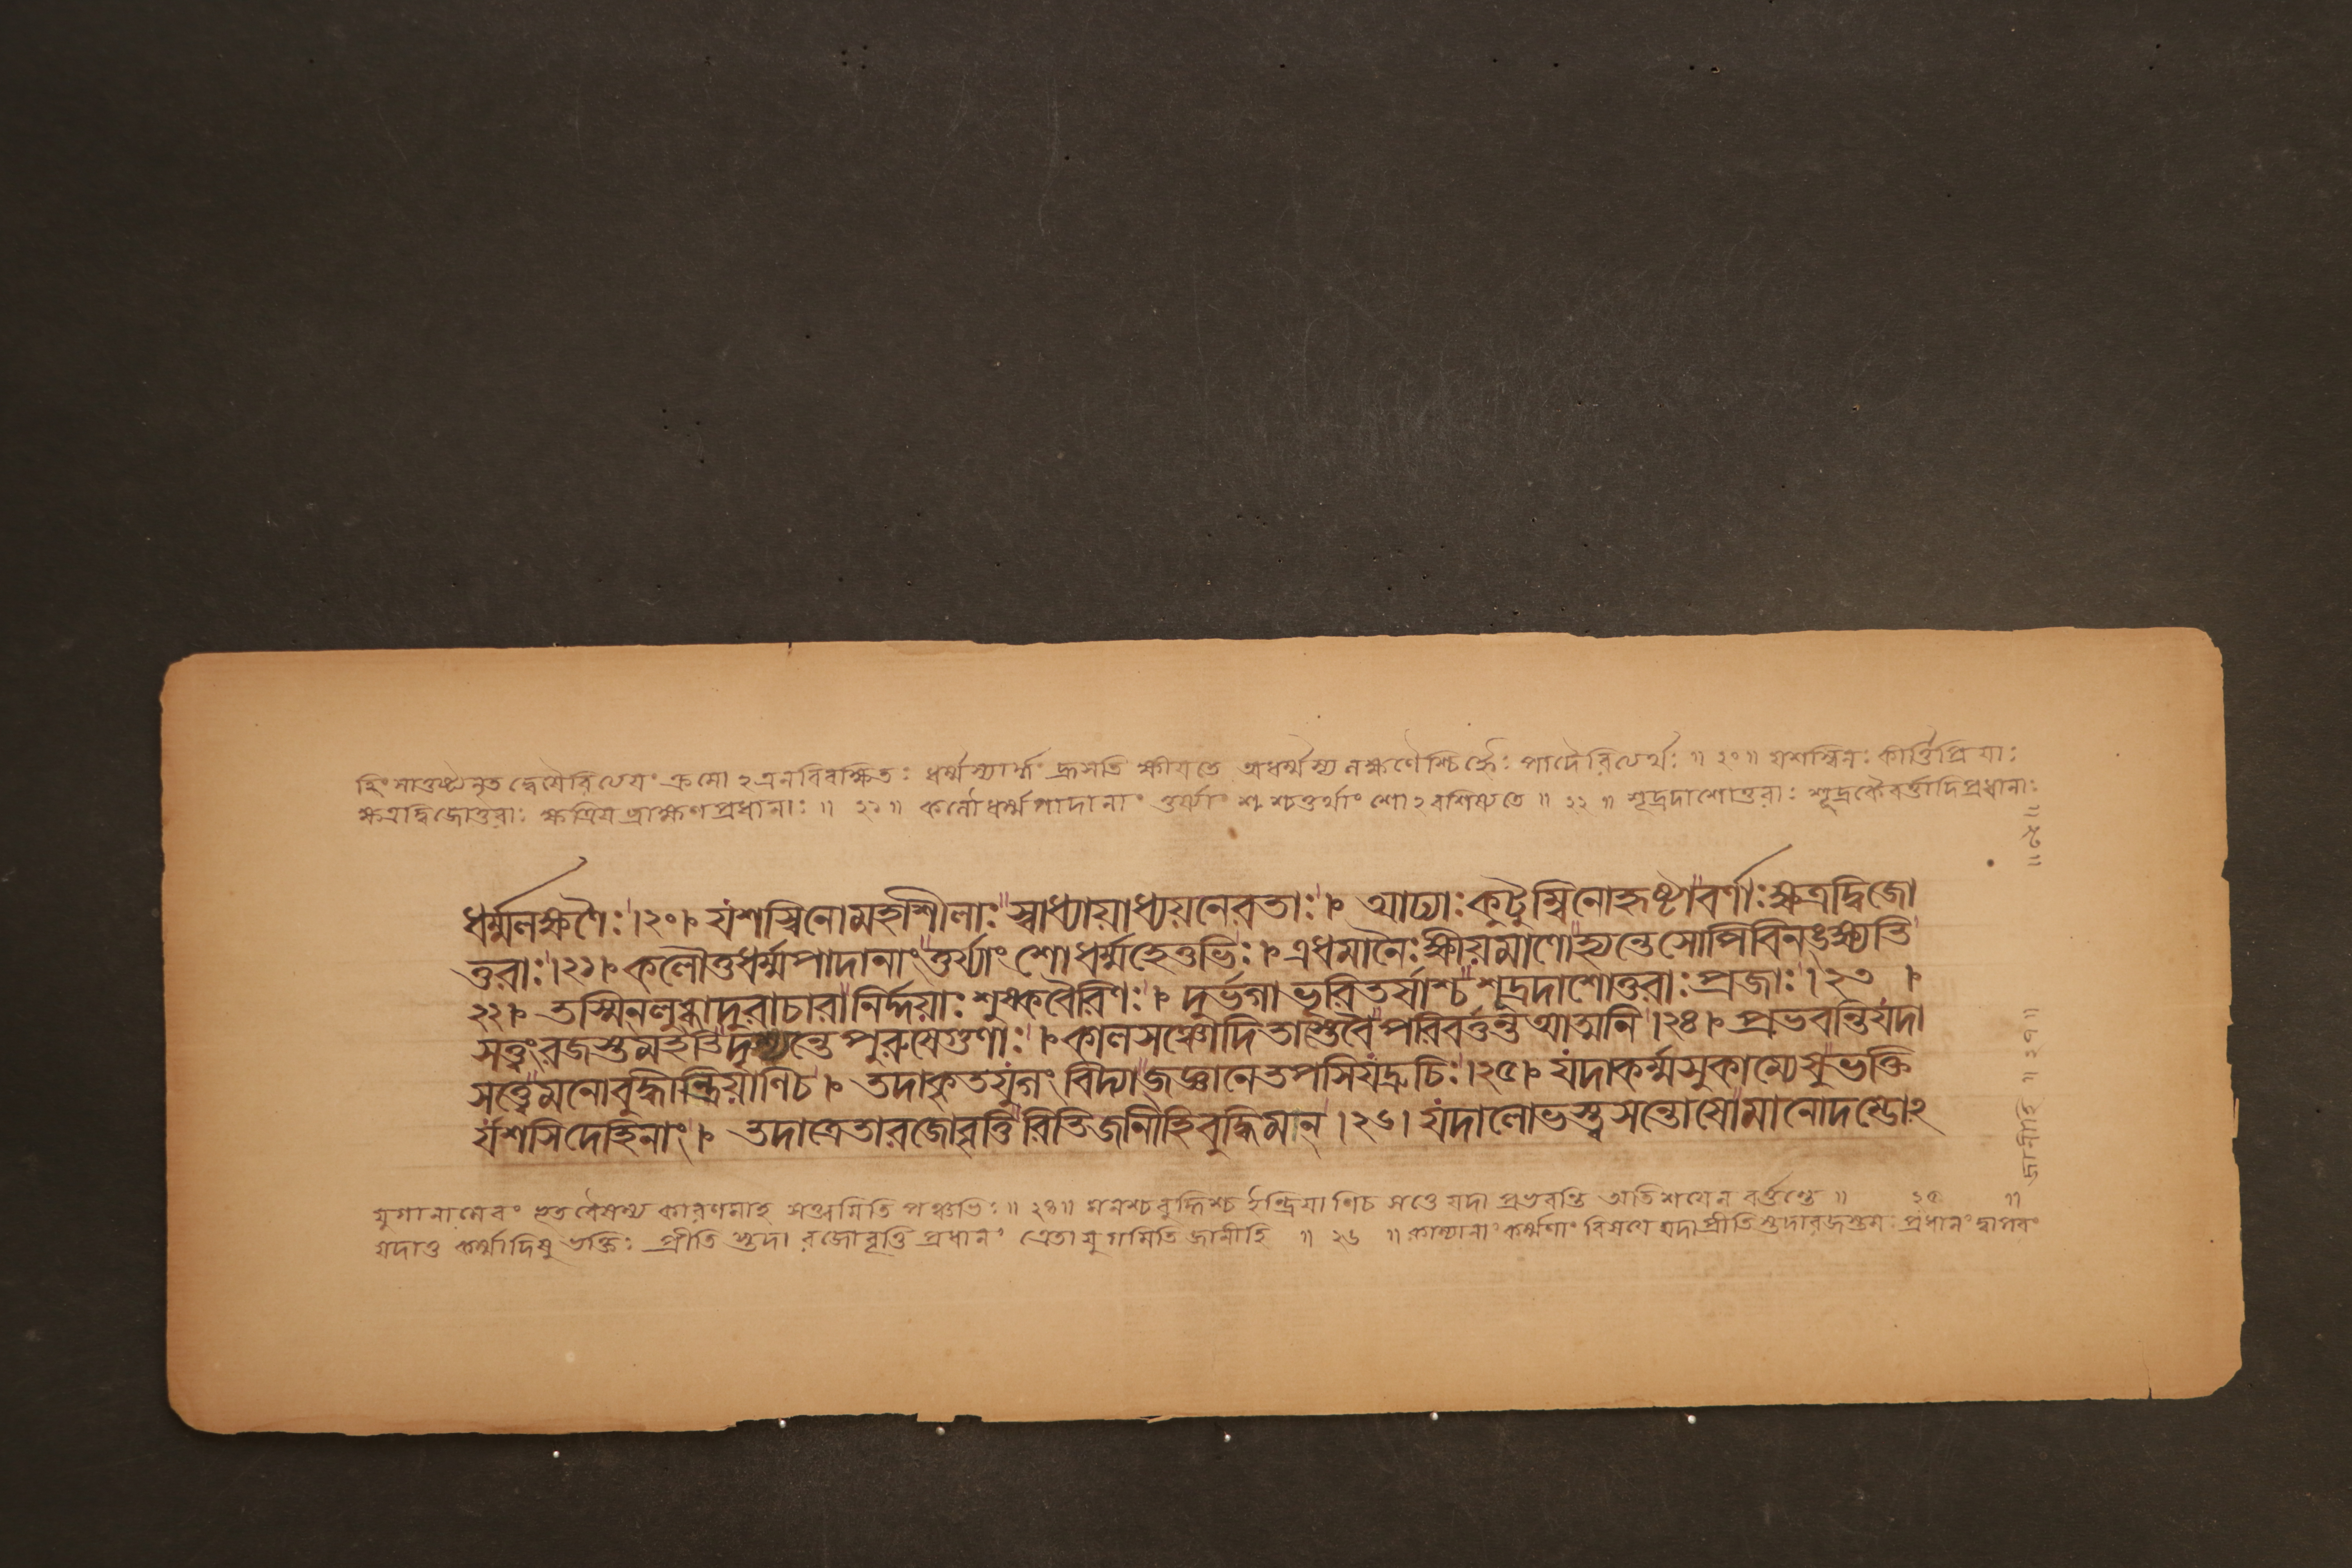 হিংসাতুষ্ট্যনৃতদ্বেষৈরিত্যেয়ং ক্রমো২ত্রনবিবক্ষিতঃ ধর্ম্মস্যার্দ্ধং হ্রসতি ক্ষীয়তে অধর্ম্মস্য লক্ষণৈশ্চিহ্নৈঃ পাদৈরিত্যর্থঃ ॥ ২০॥ যশস্বিনঃ কীর্ত্তিপ্রিয়াঃ
ক্ষত্রদ্বিজোত্তরাঃ ক্ষত্রিয়ব্রাহ্মণপ্রধানাঃ ॥ ২১॥ কলৌধর্ম্মপাদানাং তুর্য্যাংশশ্চতুর্থাংশো২বশিষ্যতে ॥ ২২ ॥ শূদ্রদাশোত্তরাঃ শূদ্রকৈবর্ত্তাদিপ্রধানাঃ
ধর্ম্মলক্ষণৈঃ।২০। যশস্বিনোমহাশীলাঃ স্বাধ্যায়াধ্যয়নেরতাঃ। আঢ্যাঃকুটুম্বিনোহৃষ্টাবর্ণাঃক্ষত্রদ্বিজো
ত্তরাঃ।২১। কলৌতুধর্ম্মপাদানাংতুর্য্যাংশোধর্ম্মহেতুভিঃ।এধমানৈঃক্ষীয়মাণোহ্যন্তেসোপিবিনঙ্ক্ষ্যতি
২২। তস্মিনলুব্ধাদুরাচারানির্দ্দয়াঃশুষ্কবৈরিণঃ। দুর্ভগাভূরিতর্ষাশ্চশূদ্রদাশোত্তরাঃপ্রজাঃ।২৩ ।
সত্ত্বংরজস্তমইতিদৃশ্যন্তেপুরুষেগুণাঃ।কালসঞ্চোদিতাস্তেবৈপরিবর্ত্তন্তআত্মনি।২৪। প্রভবন্তিযদা
সত্ত্বেমনোবুদ্ধীন্দ্রিয়াণিচ। তদাকৃতযুগং বিদ্যাজ্জ্ঞানেতপসিযদ্রুচিঃ।২৫। যদাকর্ম্মসুকাম্যেষুভক্তি
র্যশসিদেহিনাং। তদাত্রেতারজোবৃত্তিরিতিজানীহিবুদ্ধিমান্।২৬। যদালোভস্ত্বসন্তোষোমানোদম্ভো২
যুগানামেবং বৈষম্য কারণমাহ সত্ত্বমিতি পঞ্চভিঃ॥ ২৪॥ মনশ্চবুদ্ধিশ্চ ইন্দ্রিয়াণিচ সত্ত্বে যদা প্রভবন্তি অতিশয়েন বর্ত্তন্তে ॥ ২৫ ॥
যদাতু কর্ম্মাদিষু ভক্তিঃ প্রীতিস্তদা রজোবৃত্তিপ্রধানং ত্রেতাযুগমিতি জানীহি ॥ ২৬ ॥ কাম্যানাং কর্ম্মণাং বিষয়ে যদাপ্রীতিস্তদারজস্তমঃ প্রধানং দ্বাপরং
জানীহি ॥ ২৭॥